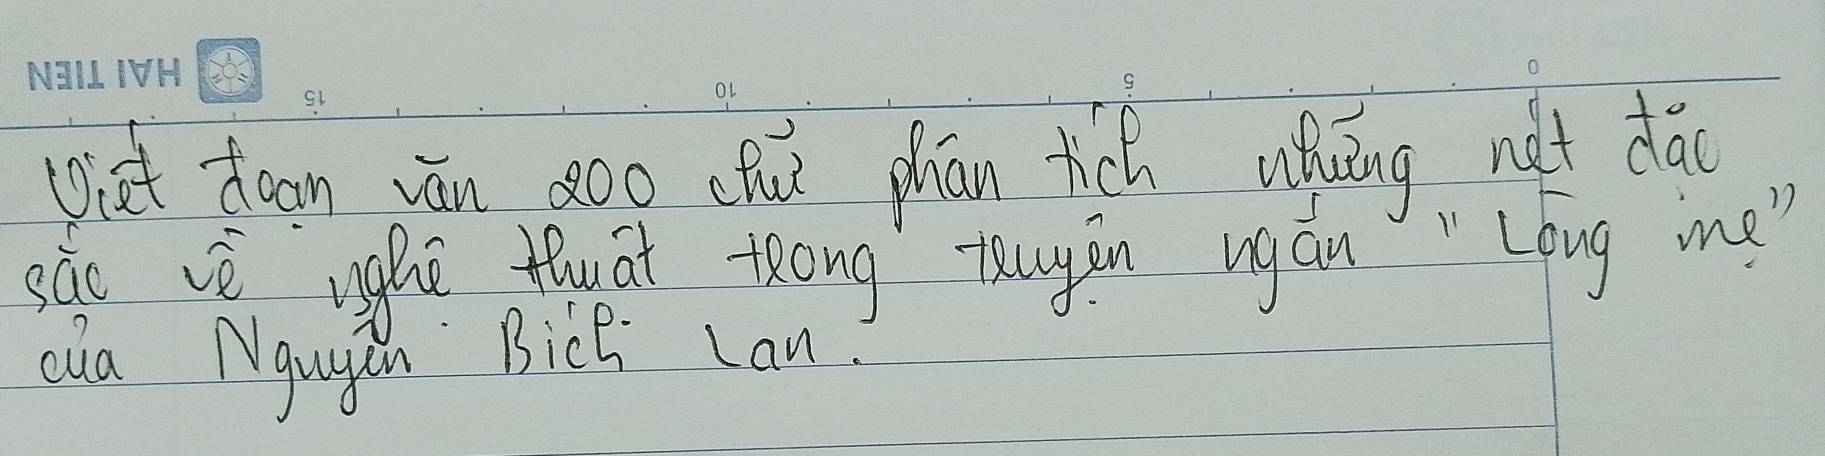 HAI TIEN
15 10 5 0
Viết đoạn văn 200 chữ phân tích những nét đặc
sắc về nghệ thuật trong truyện ngắn "Lòng mẹ"
của Nguyễn Bích Lan.